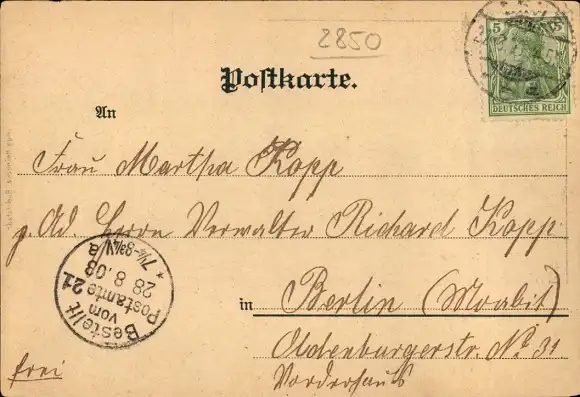 2850
5 5
DEUTSCHES REICH
Postkarte.
An
Frau Martha Kopp
p. Ad Herrn Verwalter Richard Kopp
in Berlin (Moabit)
Oldenburgerstr. No 31
Vorderhaus
frei
Bestellt
vom
Postamte 21
28.8.03
7¼-8¾V
a